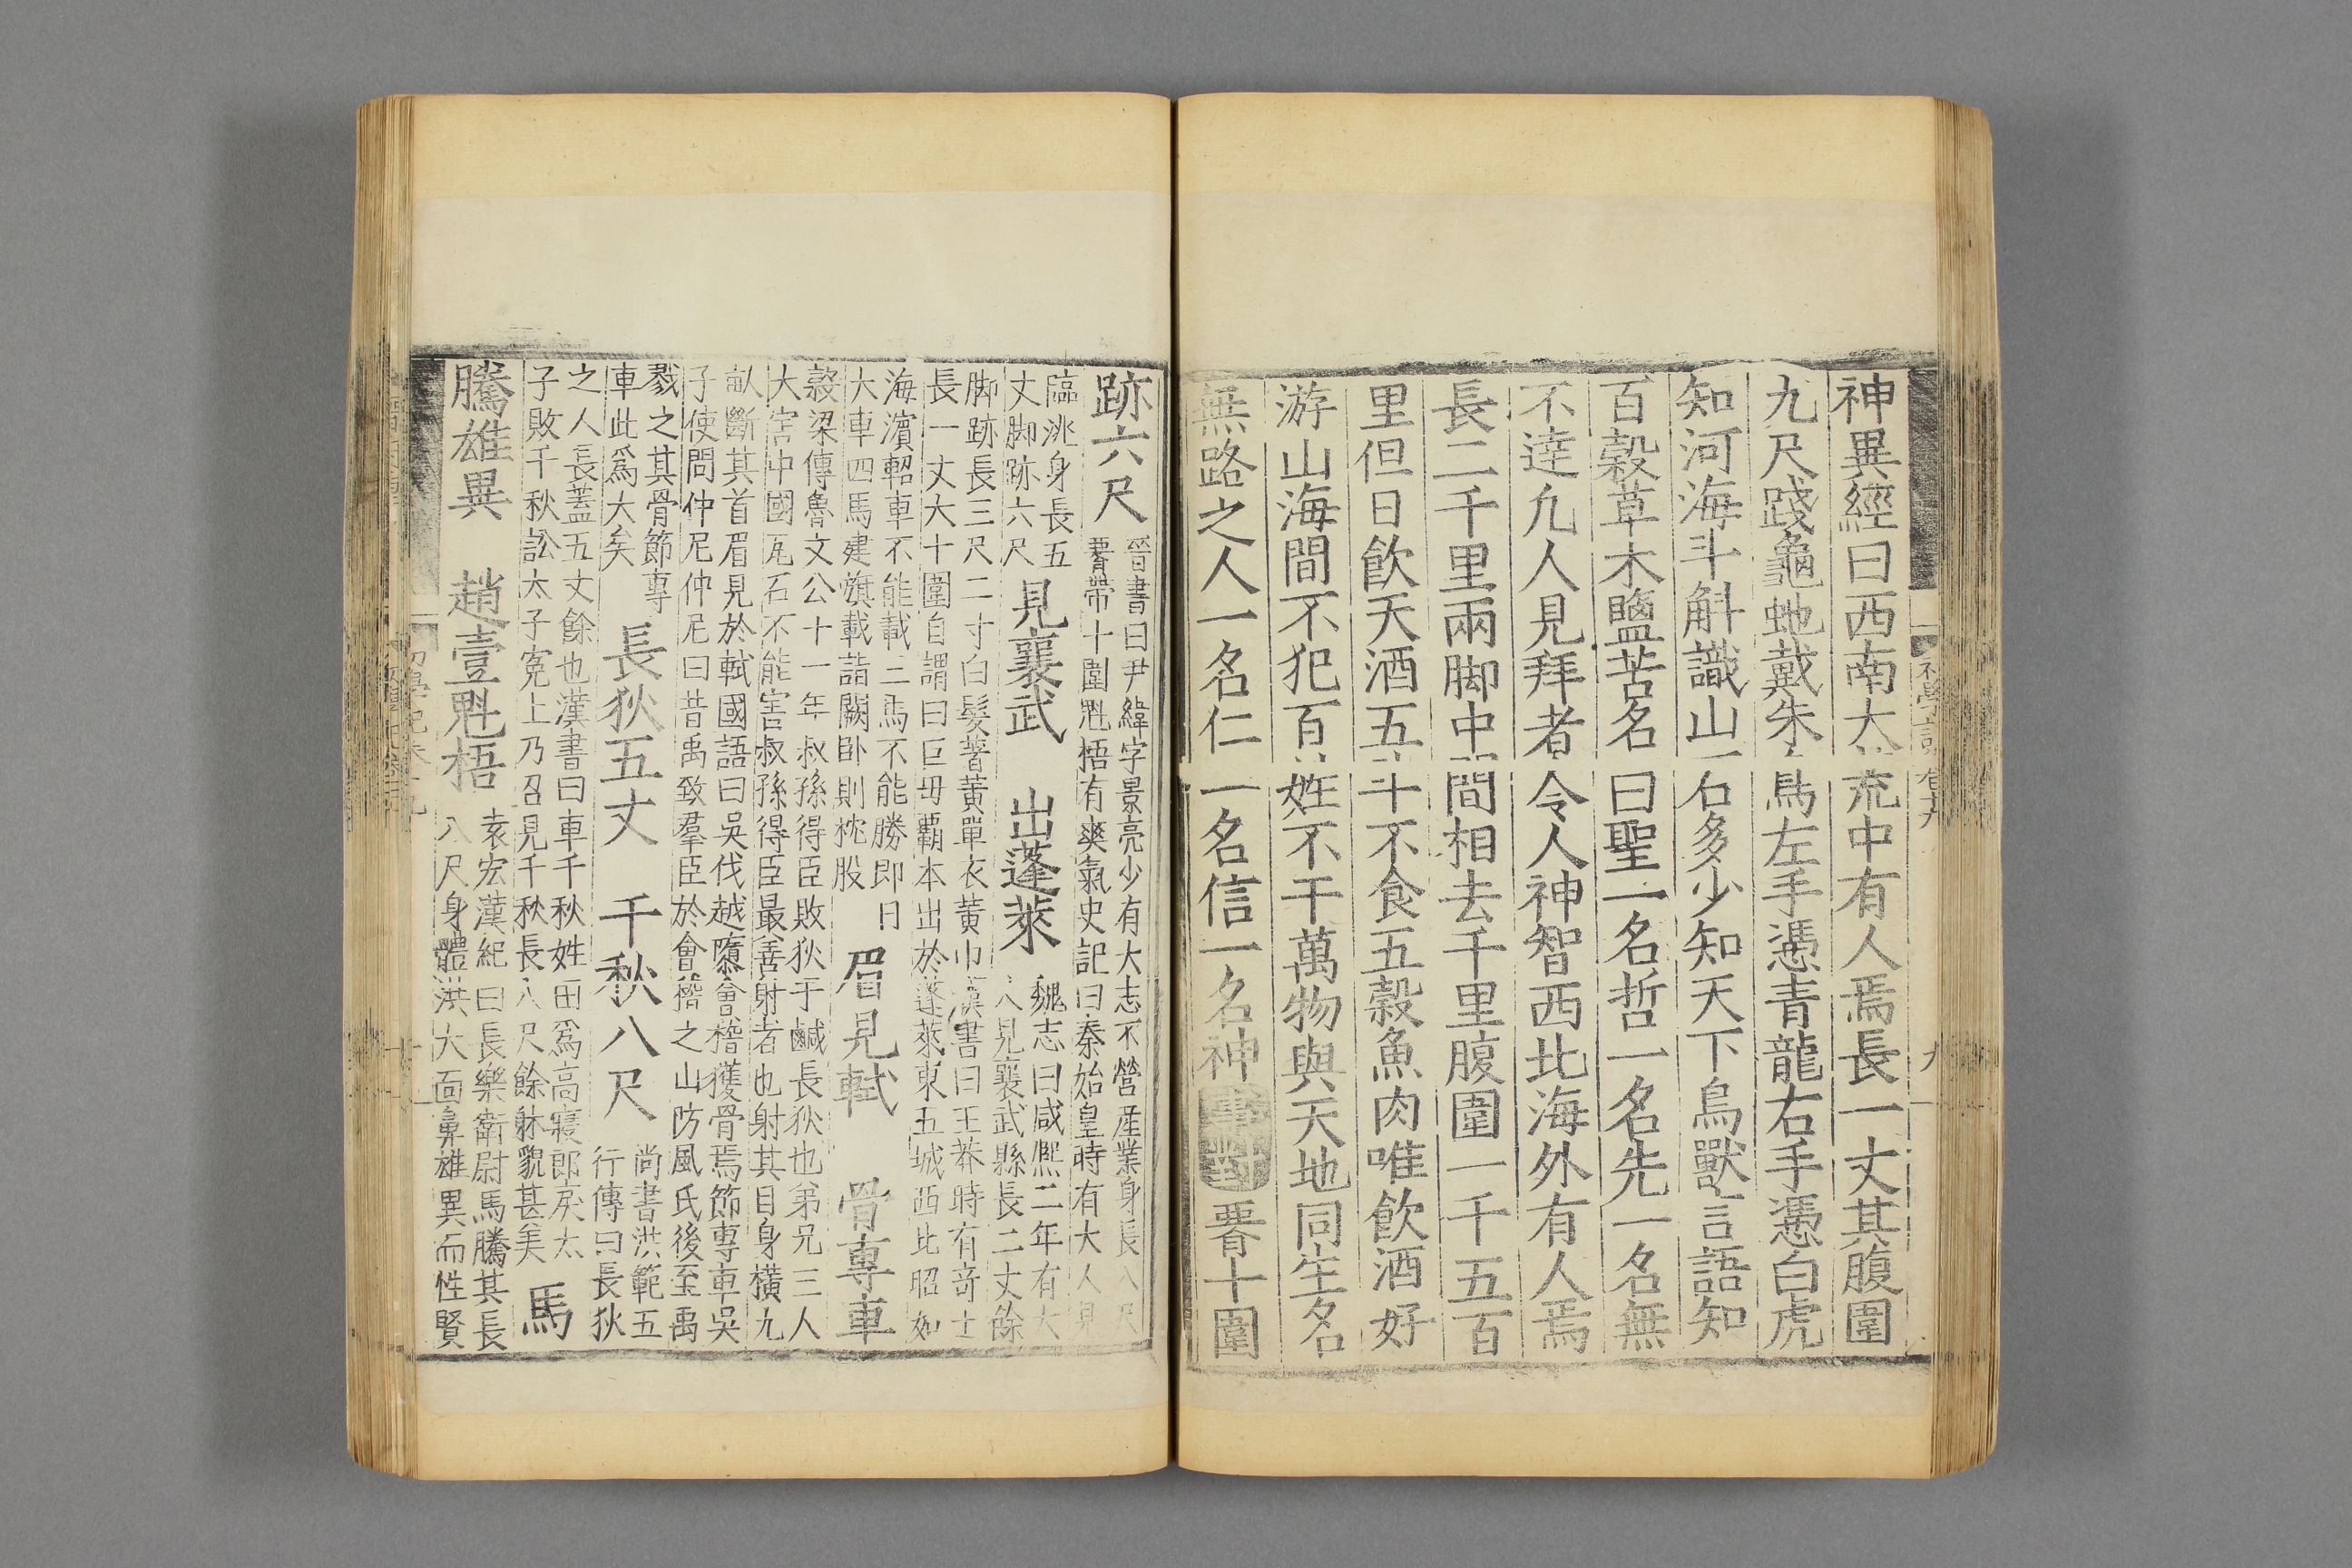 神異經曰西南大荒中有人焉長一丈其腹圍
九尺踐龜虵戴朱鳥左手憑青龍右手憑白虎
知河海斗斛識山石多少知天下鳥獸言語知
百穀草木鹽苦名曰聖一名哲一名先一名無
不達凢人見拜者令人神智西北海外有人焉
長二千里兩脚中間相去千里腹圍一千五百
里但日飲天酒五斗不食五穀魚肉唯飲酒好
游山海間不犯百姓不干萬物與天地同生名
無路之人一名仁一名信一名神事對䏿十圍
跡六尺
晉書曰尹緯字景亮少有大志不營産業身長八尺
䏿帶十圍魁梧有爽氣史記曰秦始皇時有大人見
臨洮身長五
丈脚跡六尺
見襄武 出蓬萊
魏志曰咸熈二年有大
人見襄武縣長二丈餘
脚跡長三尺二寸白髮著黃單衣黃巾漢書曰王莽時有奇士
長一丈大十圍自謂曰巨毋霸本出於蓬萊東五城西北昭如
海濵軺車不能載三馬不能勝即日
大車四馬建旗載詣闕卧則枕股
眉見軾 骨專車
榖梁傳魯文公十一年叔孫得臣敗狄于鹹長狄也弟兄三人
大害中國瓦石不能害叔孫得臣最善射者也射其目身橫九
畝斷其首眉見於軾國語曰吳伐越隳會稽獲骨焉節專車吳
子使問仲尼仲尼曰昔禹致羣臣於會稽之山防風氏後至禹
戮之其骨節專
車此爲大矣
長狄五丈 千秋八尺
尚書洪範五
行傳曰長狄
之人長蓋五丈餘也漢書曰車千秋姓田爲高寢郎戾太
子敗千秋訟太子寃上乃召見千秋長八尺餘躰貌甚美
馬
騰雄異 趙壹魁梧
袁宏漢紀曰長樂衛尉馬騰其長
八尺身體洪大面鼻雄異而性賢